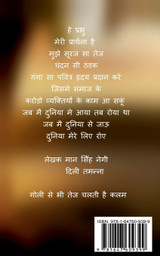 हे प्रभु
मेरी प्रार्थना है
मुझे सूरज सा तेज
चंदन सी ठंडक
गंगा सा पवित्र हृदय प्रदान करे
जिससे समाज के
करोडो व्यक्तियों के काम आ सकूं
जब मैं दुनिया मे आया तब रोया था
जब मैं दुनिया से जाऊ
दुनिया मेरे लिए रोए
लेखक मान सिंह नेगी
दिली तमन्ना
गोली से भी तेज चलती है कलम